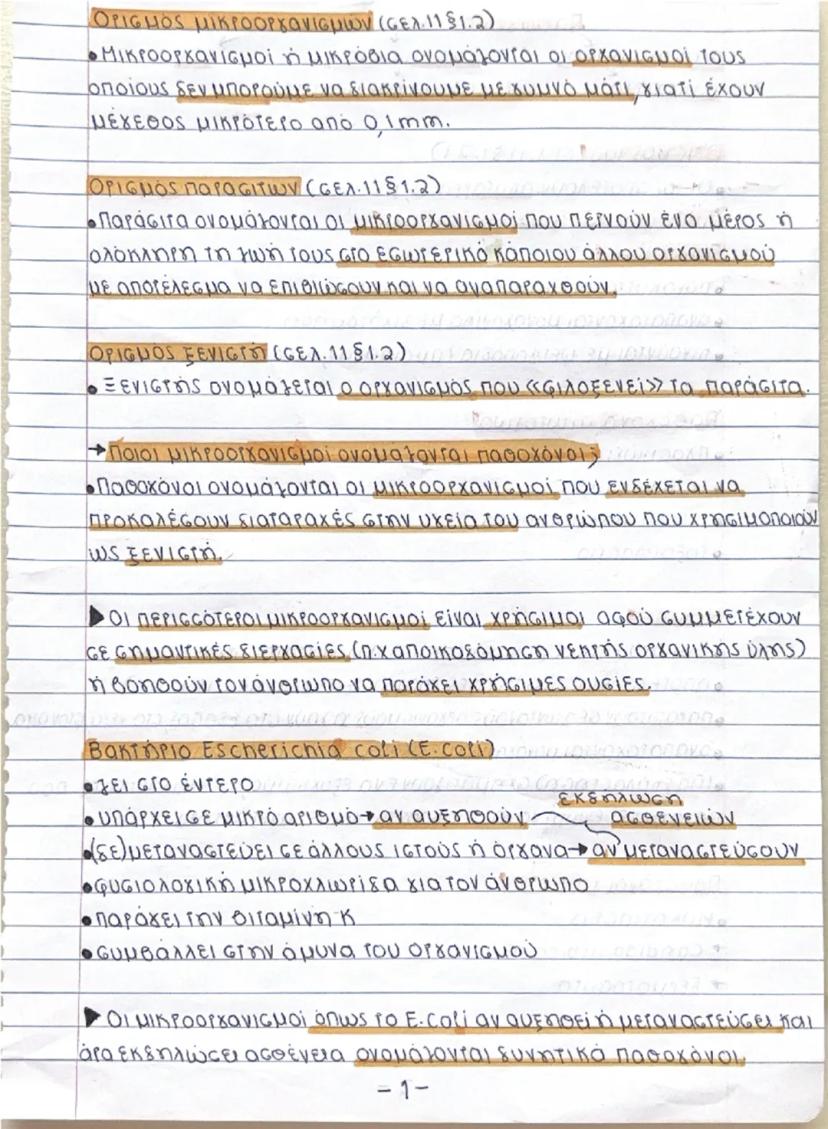 Ορισμός μικροοργανισμών (σελ.11 §1.2)
•Μικροοργανισμοί ή μικρόβια ονομάζονται οι οργανισμοί τους
οποίους δεν μπορούμε να διακρίνουμε με γυμνό μάτι, γιατί έχουν
μέγεθος μικρότερο από 0,1mm.
Ορισμός παρασίτων (σελ.11 §1.2)
•Παράσιτα ονομάζονται οι μικροοργανισμοί που περνούν ένα μέρος ή
ολόκληρη τη ζωή τους στο εσωτερικό κάποιου άλλου οργανισμού
με αποτέλεσμα να επιβιώσουν και να αναπαραχθούν.
Ορισμός ξενιστή (σελ.11 §1.2)
• Ξενιστής ονομάζεται ο οργανισμός που «φιλοξενεί» τα παράσιτα.
→Ποιοι μικροοργανισμοί ονομάζονται παθογόνοι;
•Παθογόνοι ονομάζονται οι μικροοργανισμοί που ενδέχεται να
προκαλέσουν διαταραχές στην υγεία του ανθρώπου που χρησιμοποιούν
ως ξενιστή.
▶Οι περισσότεροι μικροοργανισμοί είναι χρήσιμοι αφού συμμετέχουν
σε σημαντικές διεργασίες (π.χ αποικοδόμηση νεκρής οργανικής ύλης)
ή βοηθούν τον άνθρωπο να παράγει χρήσιμες ουσίες.
Βακτήριο Escherichia coli (E.coli)
•ζει στο έντερο
•υπάρχει σε μικρό αριθμό→αν αυξηθούν εκδήλωση ασθενειών
•(δε) μεταναστεύει σε άλλους ιστούς ή όργανα→αν μεταναστεύσουν
•φυσιολογική μικροχλωρίδα για τον άνθρωπο
•παράγει την βιταμίνη Κ
•συμβάλλει στην άμυνα του οργανισμού
▶ Οι μικροοργανισμοί όπως το E.coli αν αυξηθεί ή μεταναστεύσει και
άρα εκδηλώσει ασθένεια ονομάζονται δυνητικά παθογόνοι.
-1-